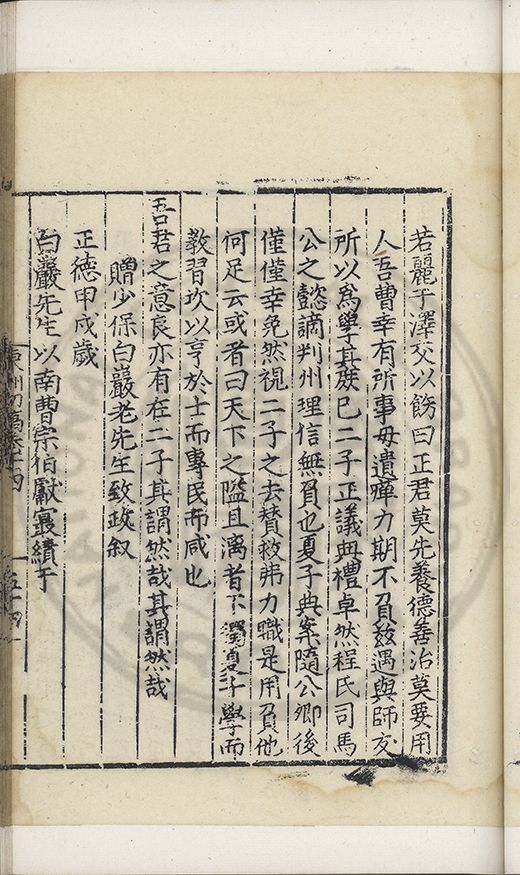 若麗于澤交以飭曰正君莫先養德善治莫要用
人吾曹幸有所事毋遺殫力期不負茲遇與師友
所以為學其蔑已二子正議典禮卓然程氏司馬
公之懿謫判州理信無負也夏子典案隨公卿後
僅僅幸免然視二子之去贊救弗力職是用負他
何足云或者曰天下之隘且漓者不獨夏子學而
教習坎以亨於士而專民而咸也
吾君之意良亦有在二子其謂然哉其謂然哉
贈少保白巖老先生致政叙
正德甲戌歲
白巖先生以南曹宗伯獻最績于
東洲初稿卷十四
五十四